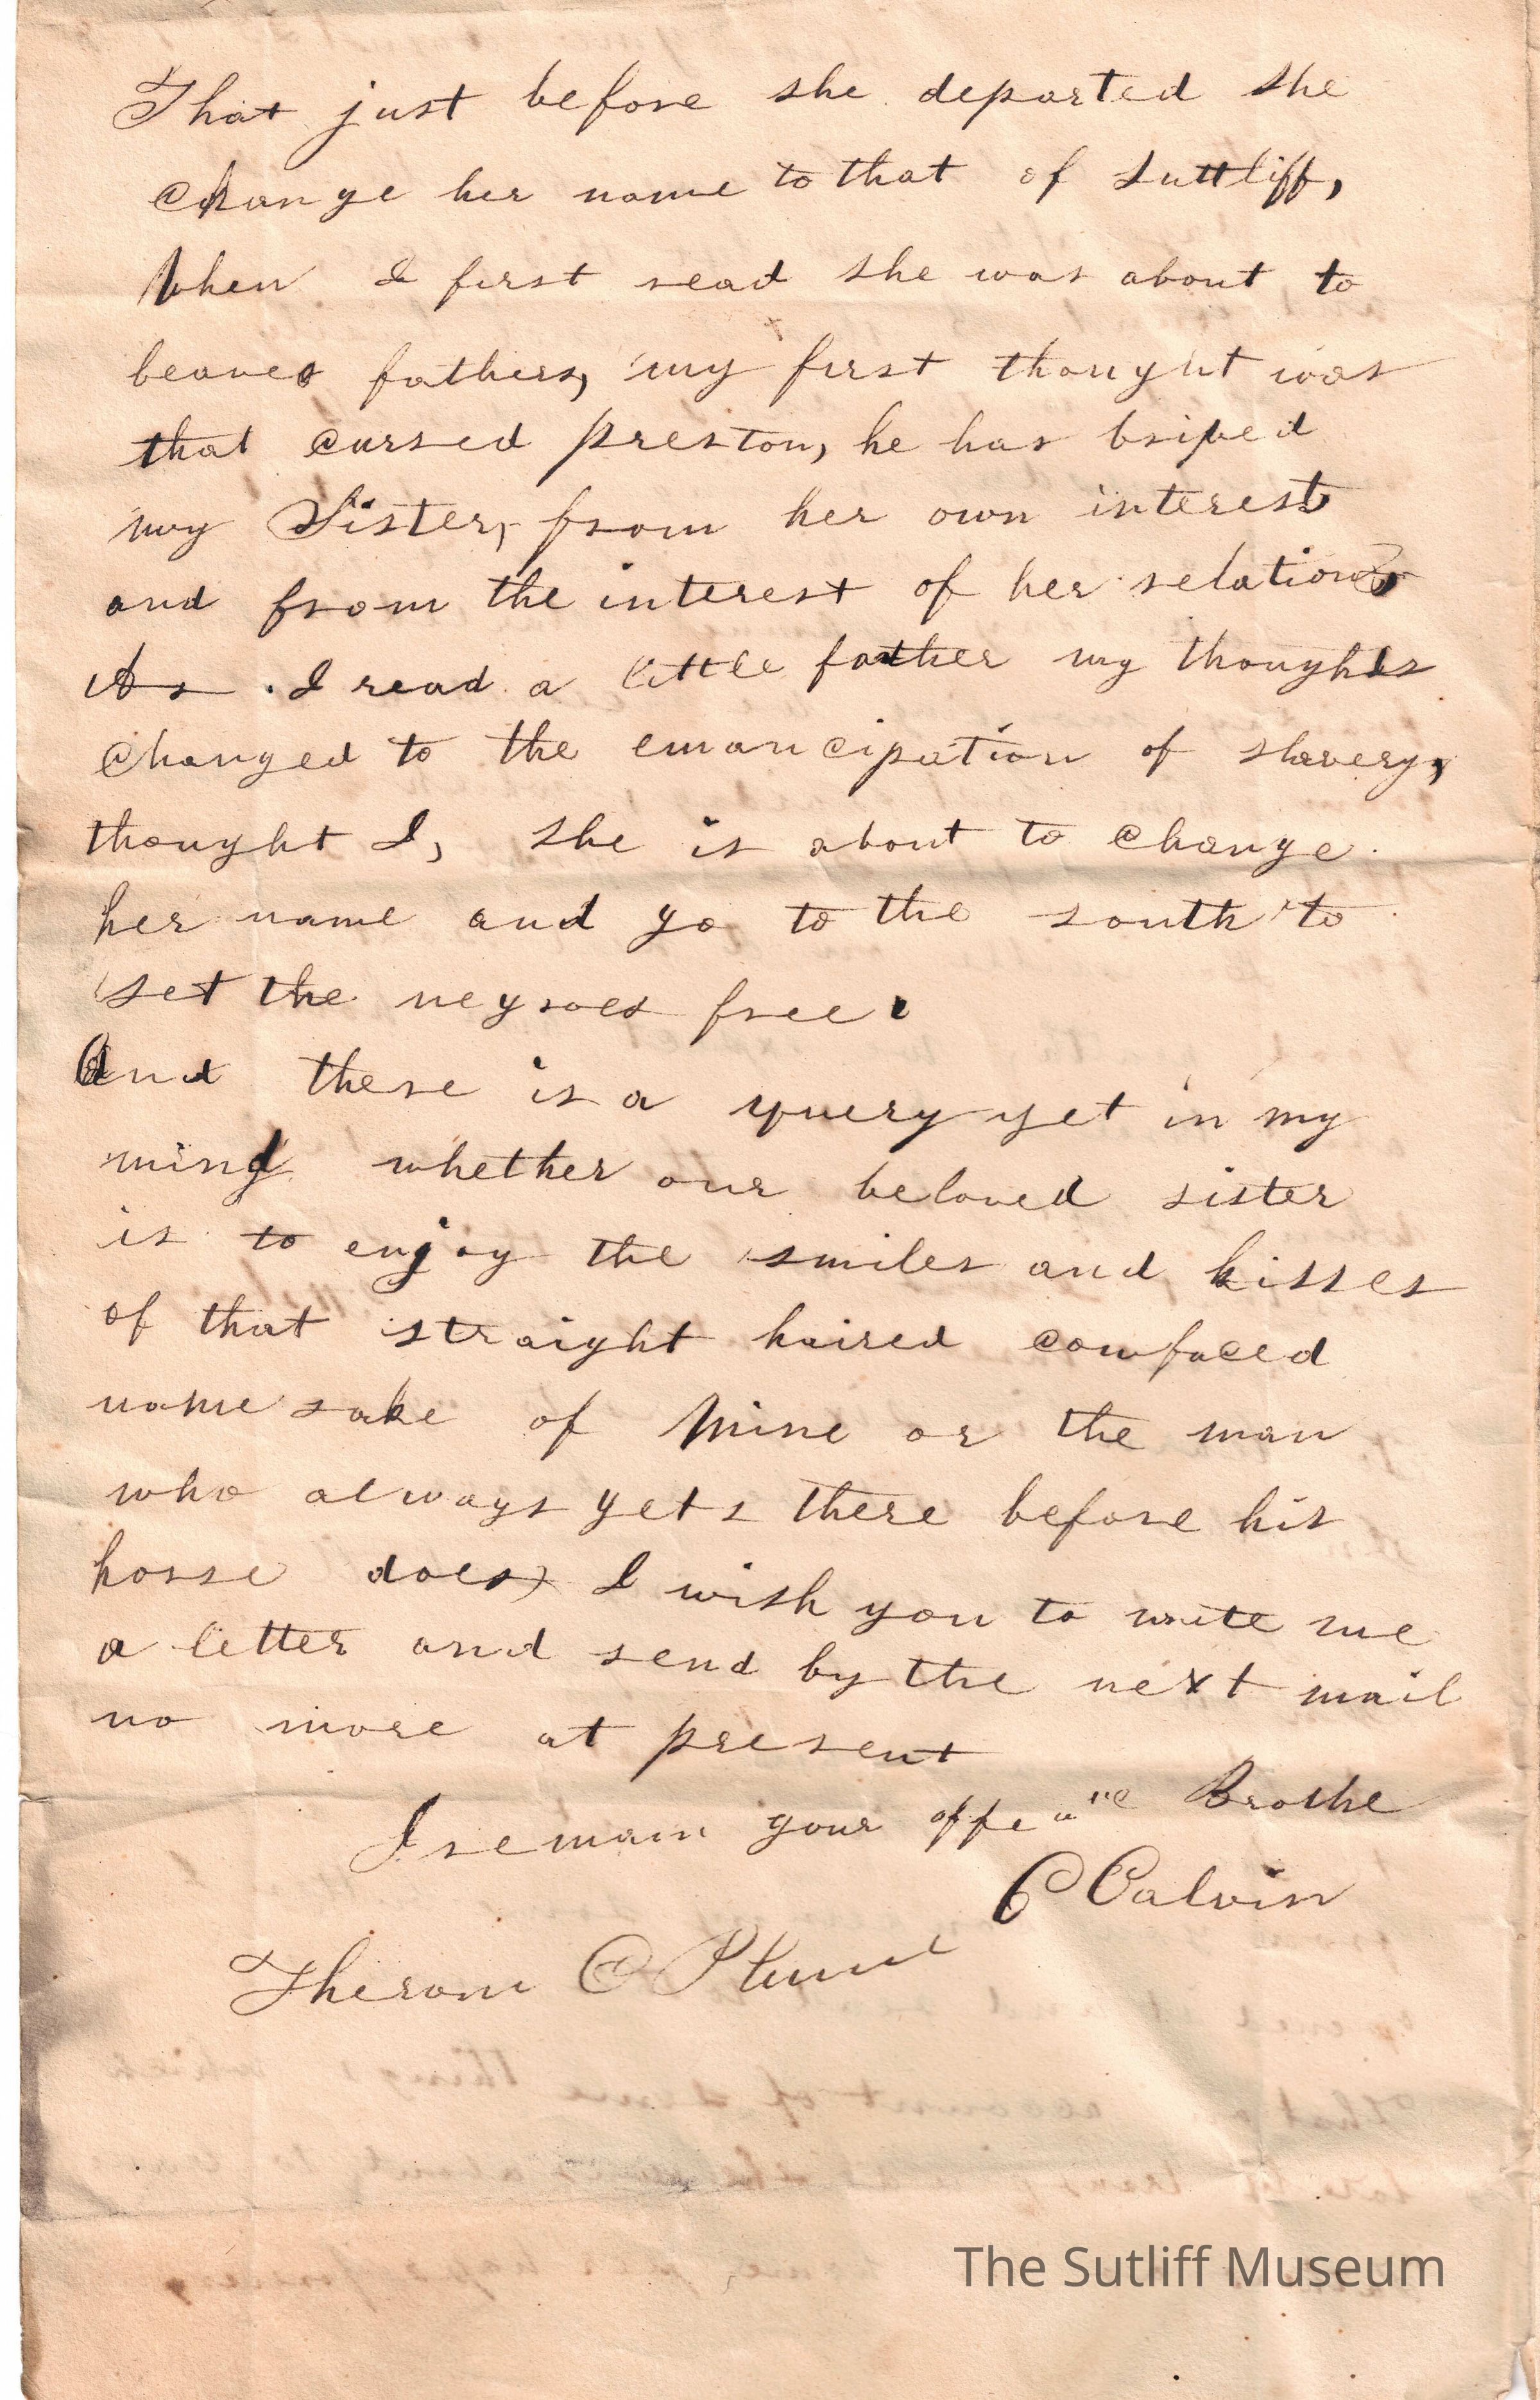 That just before she departed she
change her name to that of Suttliff,
When I first read she was about to
leave fathers, my first thought was
that cursed preston, he has briped
my Sister, from her own interest
and from the interest of her relations,
As I read a little father my thoughts
changed to the emancipation of slavery,
thought I, she is about to change
her name and go to the south to
set the negroes free.
And there is a query yet in my
mind whether our beloved sister
is to enjoy the smiles and kisses
of that straight haired cowfaced
name sake of Mine or the man
who always gets there before his
horse does, I wish you to write me
a letter and send by the next mail
no more at present
I remain your Brothe
C Calvin
Theron
The Sutliff Museum